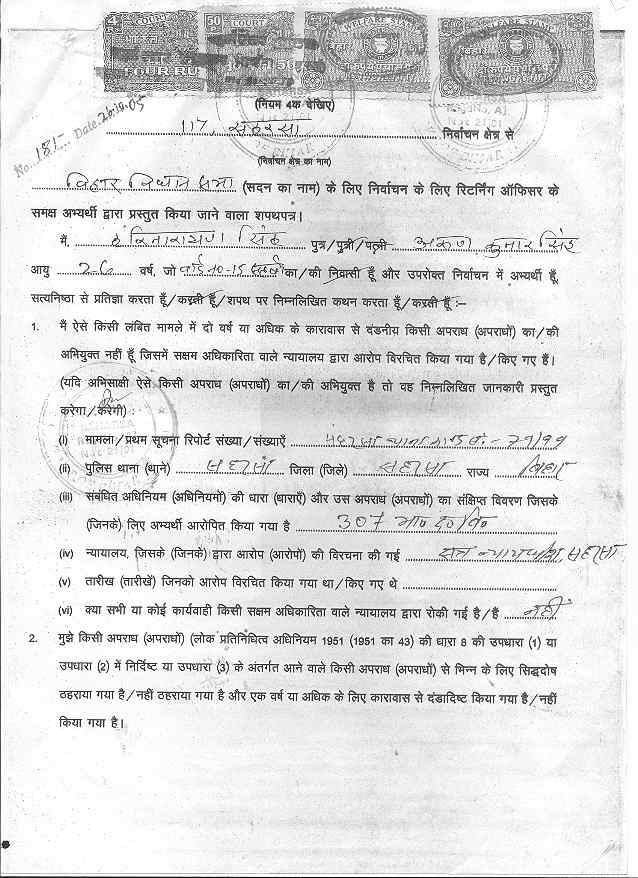 4 COURT
50 COURT
WELFARE STAMP
WELFARE STAMP
FOUR RU
No. 181- Date 26.10.05
(नियम 4क देखिए)
117, सहरसा निर्वाचन क्षेत्र से
(निर्वाचन क्षेत्र का नाम)
बिहार विधान सभा (सदन का नाम) के लिए निर्वाचन के लिए रिटर्निंग ऑफिसर के
समक्ष अभ्यर्थी द्वारा प्रस्तुत किया जाने वाला शपथपत्र।
मैं, सिंह पुत्र/पुत्री/पत्नी कुमार सिंह
आयु 26 वर्ष, जो वार्ड 10-15 का/की निवासी हूँ और उपरोक्त निर्वाचन में अभ्यर्थी हूँ,
सत्यनिष्ठा से प्रतिज्ञा करता हूँ/करती हूँ/शपथ पर निम्नलिखित कथन करता हूँ/करती हूँ :–
1. मैं ऐसे किसी लंबित मामले में दो वर्ष या अधिक के कारावास से दंडनीय किसी अपराध (अपराधों) का/की
अभियुक्त नहीं हूँ, जिसमें सक्षम अधिकारिता वाले न्यायालय द्वारा आरोप विरचित किया गया है/किए गए हैं।
(यदि अभिसाक्षी ऐसे किसी अपराध (अपराधों) का/की अभियुक्त है तो वह निम्नलिखित जानकारी प्रस्तुत
करेगा/करेगी)
(i) मामला/प्रथम सूचना रिपोर्ट संख्या/संख्याएँ सहरसा थाना का० सं० - 79/99
(ii) पुलिस थाना (थाने) सहरसा जिला (जिले) सहरसा राज्य बिहार
(iii) संबंधित अधिनियम (अधिनियमों) की धारा (धाराएँ) और उस अपराध (अपराधों) का संक्षिप्त विवरण जिसके
(जिनके) लिए अभ्यर्थी आरोपित किया गया है 307 भा० द० वि०
(iv) न्यायालय, जिसके (जिनके) द्वारा आरोप (आरोपों) की विरचना की गई सत्र न्यायाधीश, सहरसा
(v) तारीख (तारीखें) जिनको आरोप विरचित किया गया था/किए गए थे
(vi) क्या सभी या कोई कार्यवाही किसी सक्षम अधिकारिता वाले न्यायालय द्वारा रोकी गई है/हैं नहीं
2. मुझे किसी अपराध (अपराधों) (लोक प्रतिनिधित्व अधिनियम 1951 (1951 का 43) की धारा 8 की उपधारा (1) या
उपधारा (2) में निर्दिष्ट या उपधारा (3) के अंतर्गत आने वाले किसी अपराध (अपराधों) से भिन्न के लिए सिद्धदोष
ठहराया गया है/नहीं ठहराया गया है और एक वर्ष या अधिक के लिए कारावास से दंडादिष्ट किया गया है/नहीं
किया गया है।